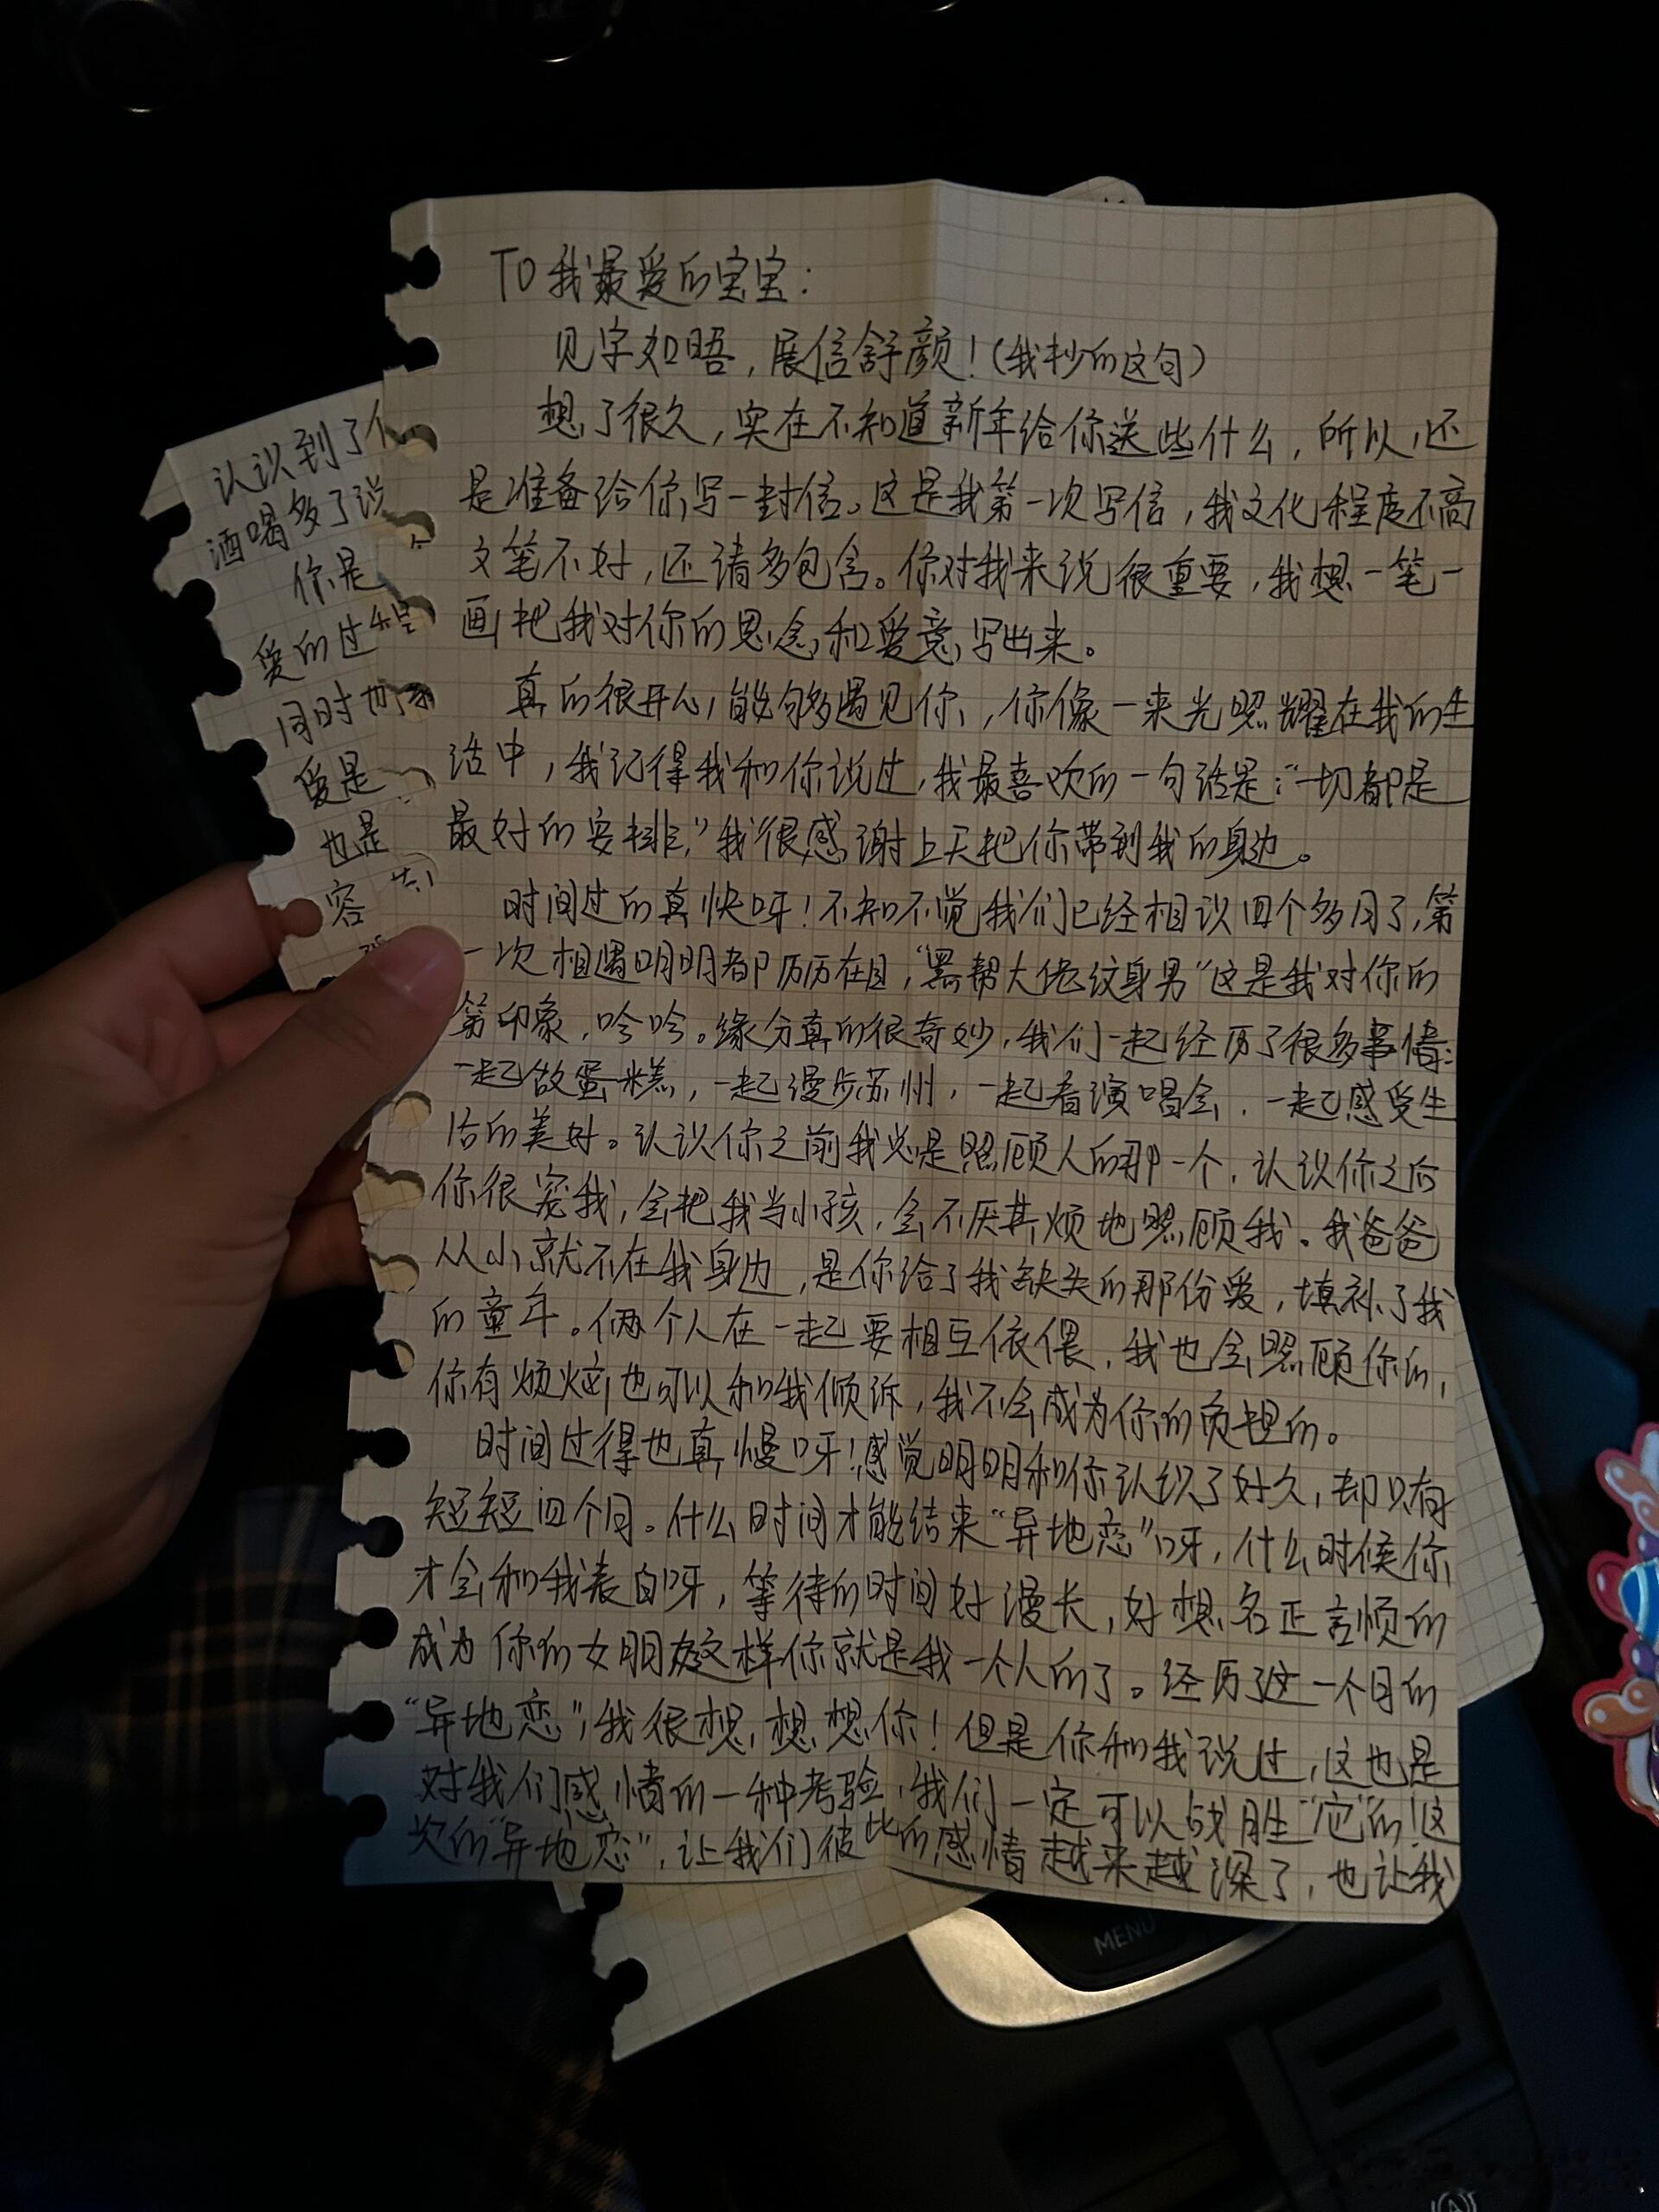 TO 我最爱的宝宝：
见字如晤，展信舒颜！（我抄的这句）
想了很久，实在不知道新年给你送些什么，所以，还
是准备给你写一封信。这是我第一次写信，我文化程度不高
文笔不好，还请多包含。你对我来说很重要，我想一笔一
画把我对你的思念和爱意写出来。
真的很开心，能够遇见你，你像一束光照耀在我的生
活中，我记得我和你说过，我最喜欢的一句话是：“一切都是
最好的安排，”我很感谢上天把你带到我的身边。
时间过的真快呀！不知不觉我们已经相识四个多月了，第
一次相遇明明都历历在目，“黑帮大佬纹身男”这是我对你的
第一印象，哈哈。缘分真的很奇妙，我们一起经历了很多事情：
一起做蛋糕，一起漫步苏州，一起看演唱会，一起感受生
活的美好。认识你之前我总是照顾人的那一个，认识你之后
你很宠我，会把我当小孩，会不厌其烦地照顾我。我爸爸
从小就不在我身边，是你给了我缺失的那份爱，填补了我
的童年。俩个人在一起要相互依偎，我也会照顾你的，
你有烦恼也可以和我倾诉，我不会成为你的负担的。
时间过得也真慢呀！感觉明明和你认识了好久，却只有
短短四个月。什么时间才能结束“异地恋”呀，什么时候你
才会和我表白呀，等待的时间好漫长，好想名正言顺的
成为你的女朋友这样你就是我一个人的了。经历了这一个月的
“异地恋”，我很想，想，想你！但是你和我说过，这也是
对我们感情的一种考验，我们一定可以战胜“它”的！这
次的“异地恋”，让我们彼此的感情越来越深了，也让我
认识到了
酒喝多了说
你是
爱的过程
同时也
爱是
也是
容
MENU